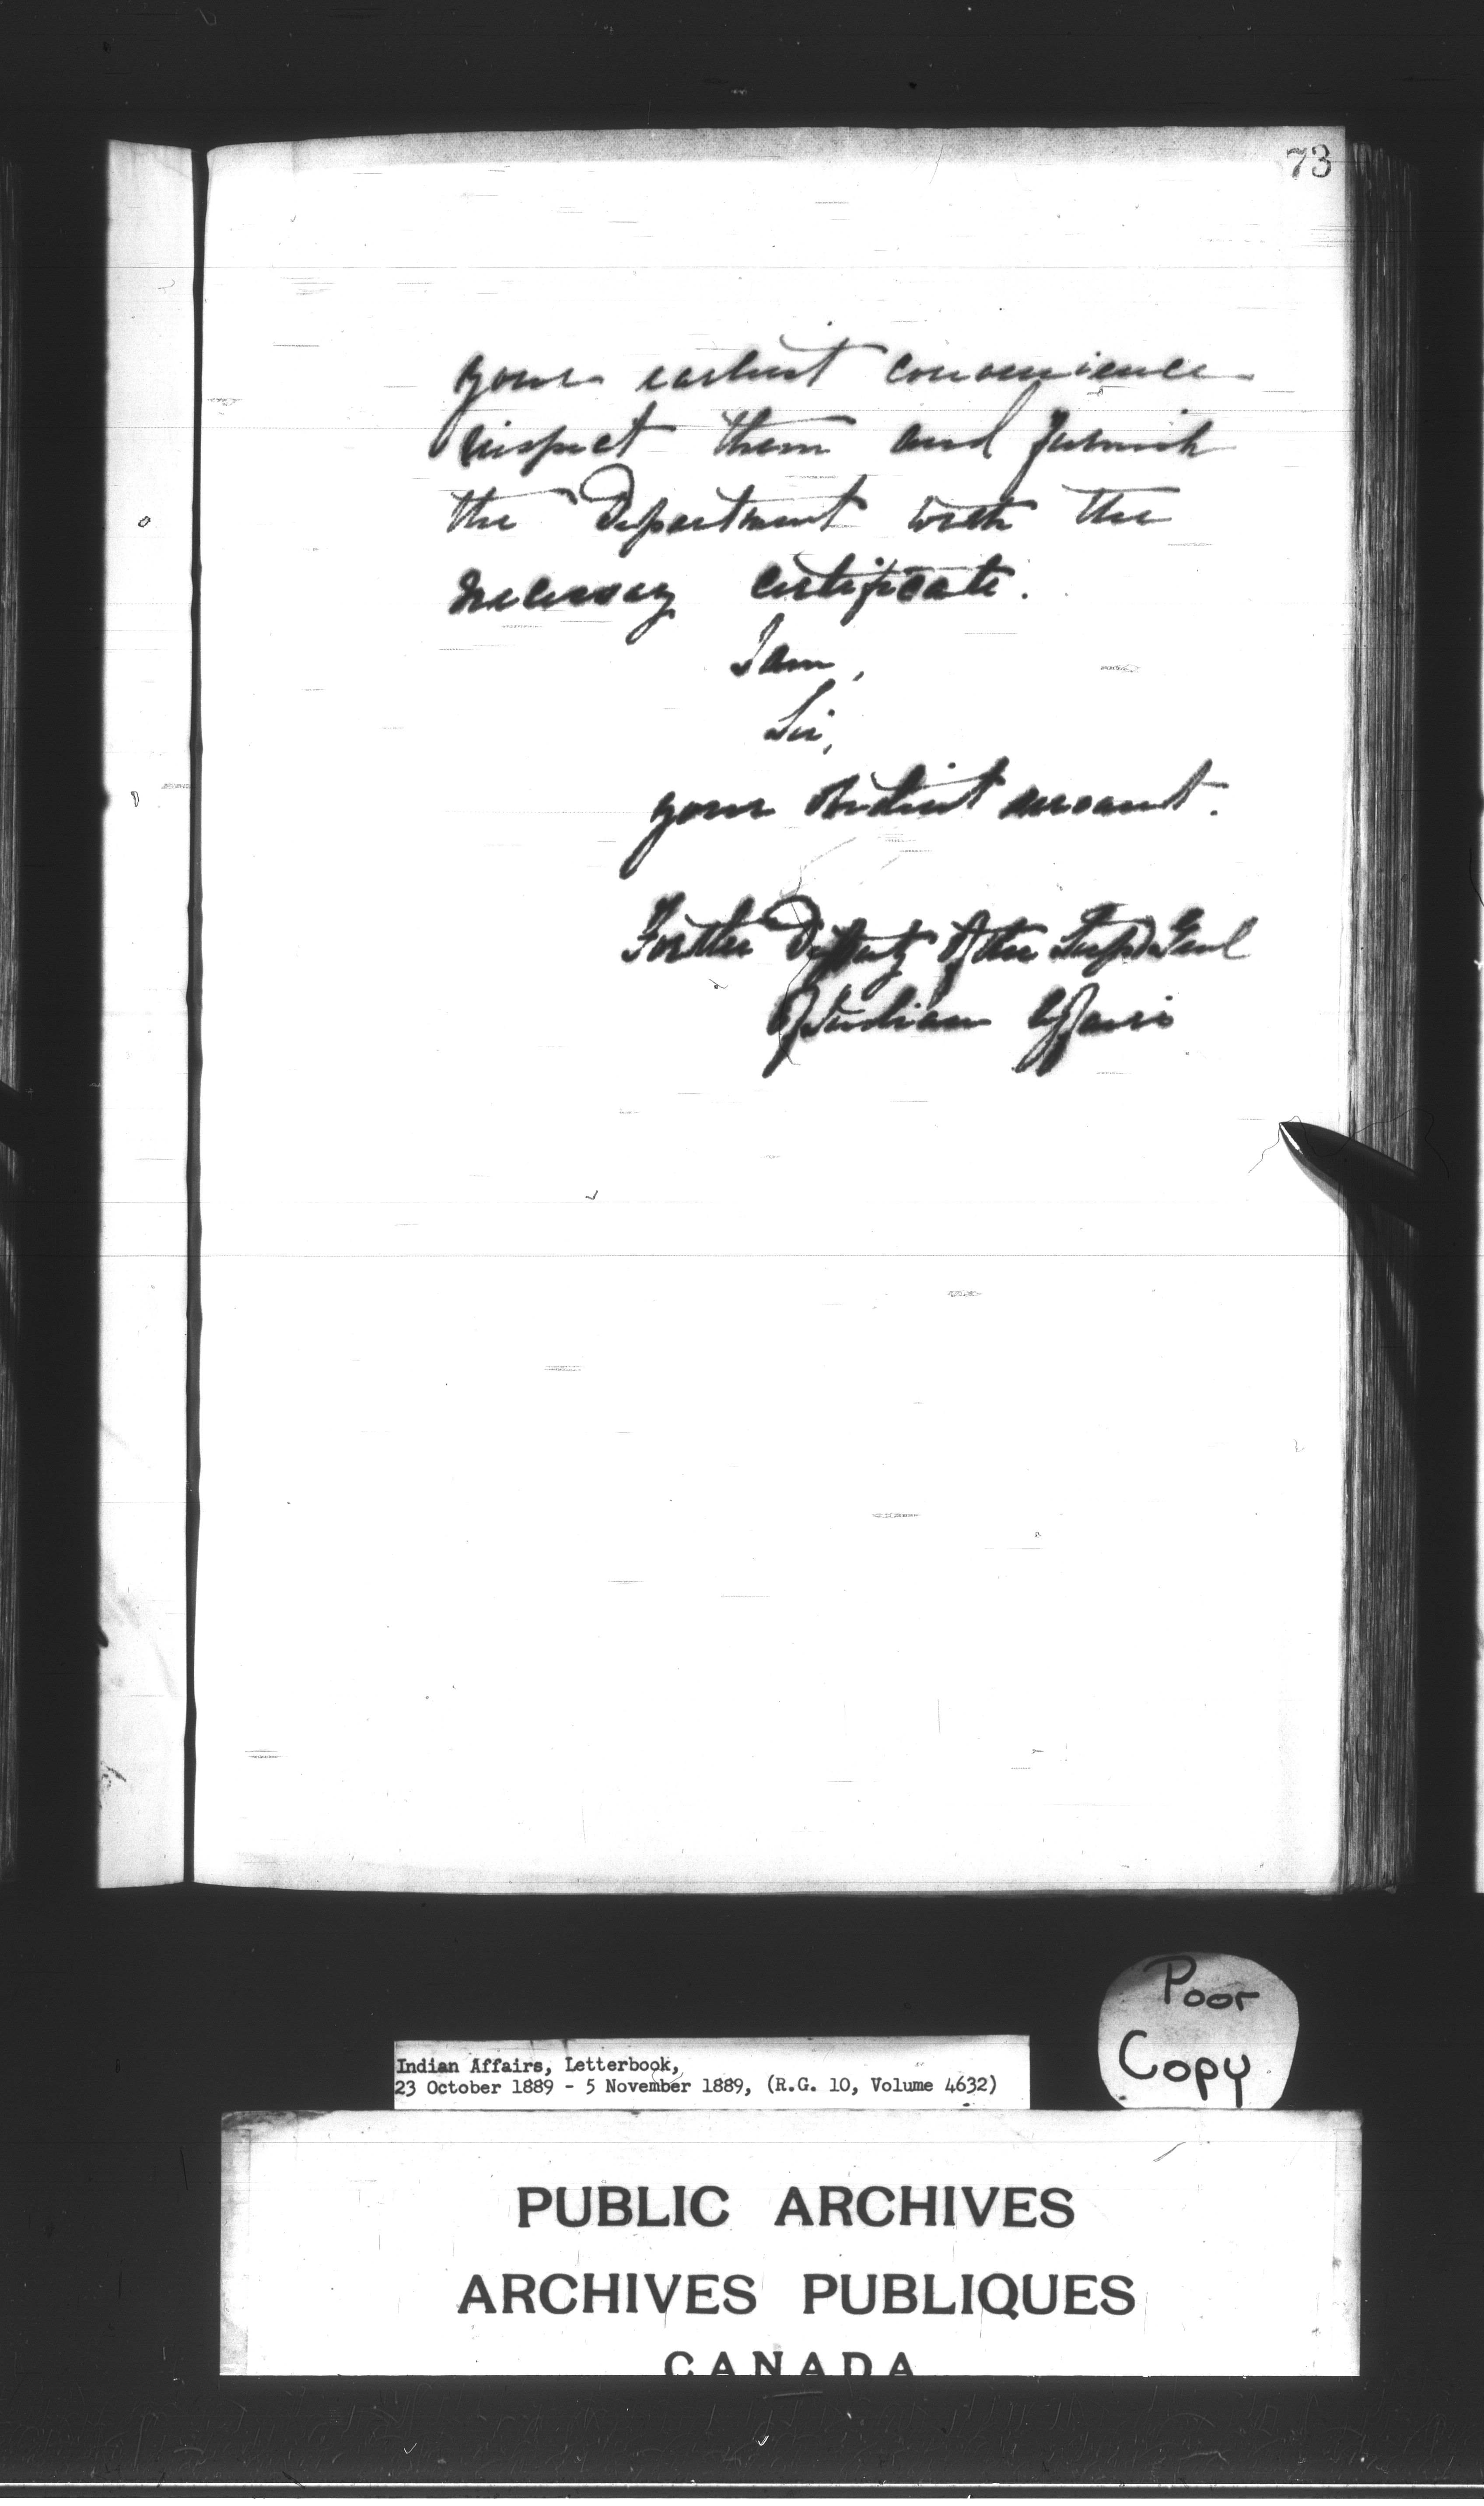 73
your earliest convenience
inspect them and furnish
the Department with the
necessary certificate.
I am,
Sir,
your obedient servant.
For the Deputy of the Supt Genl
of Indian Affairs
Poor
Copy
Indian Affairs, Letterbook,
23 October 1889 - 5 November 1889, (R.G. 10, Volume 4632)
PUBLIC ARCHIVES
ARCHIVES PUBLIQUES
CANADA